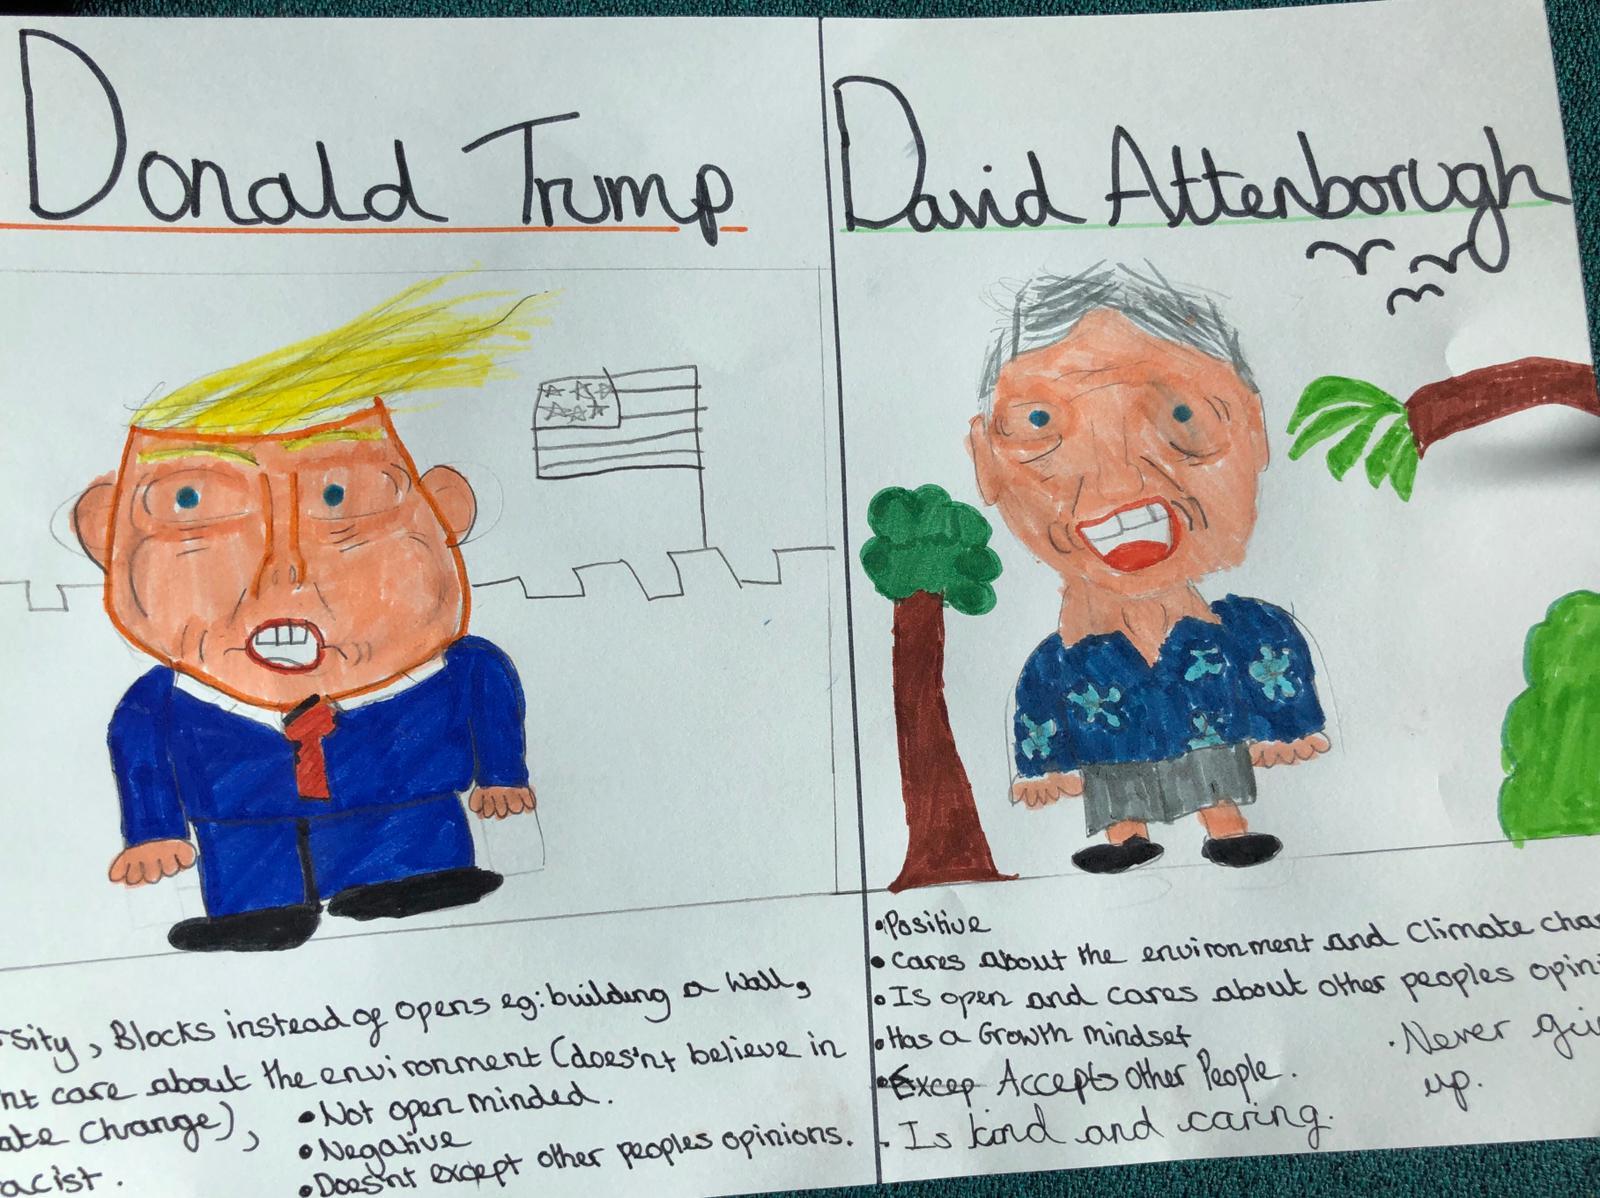 Donald Trump
rsity, Blocks instead of opens eg: building a wall,
nt care about the environment (does'nt believe in
ate change),
acist.
• Not open minded.
• Negative
• Does'nt except other peoples opinions.
David Attenborough
• Positive
• Cares about the environment and Climate cha
• Is open and cares about other peoples opini
• Has a Growth mindset
• Excep Accepts Other People.
• Is kind and caring.
• Never giv
up.